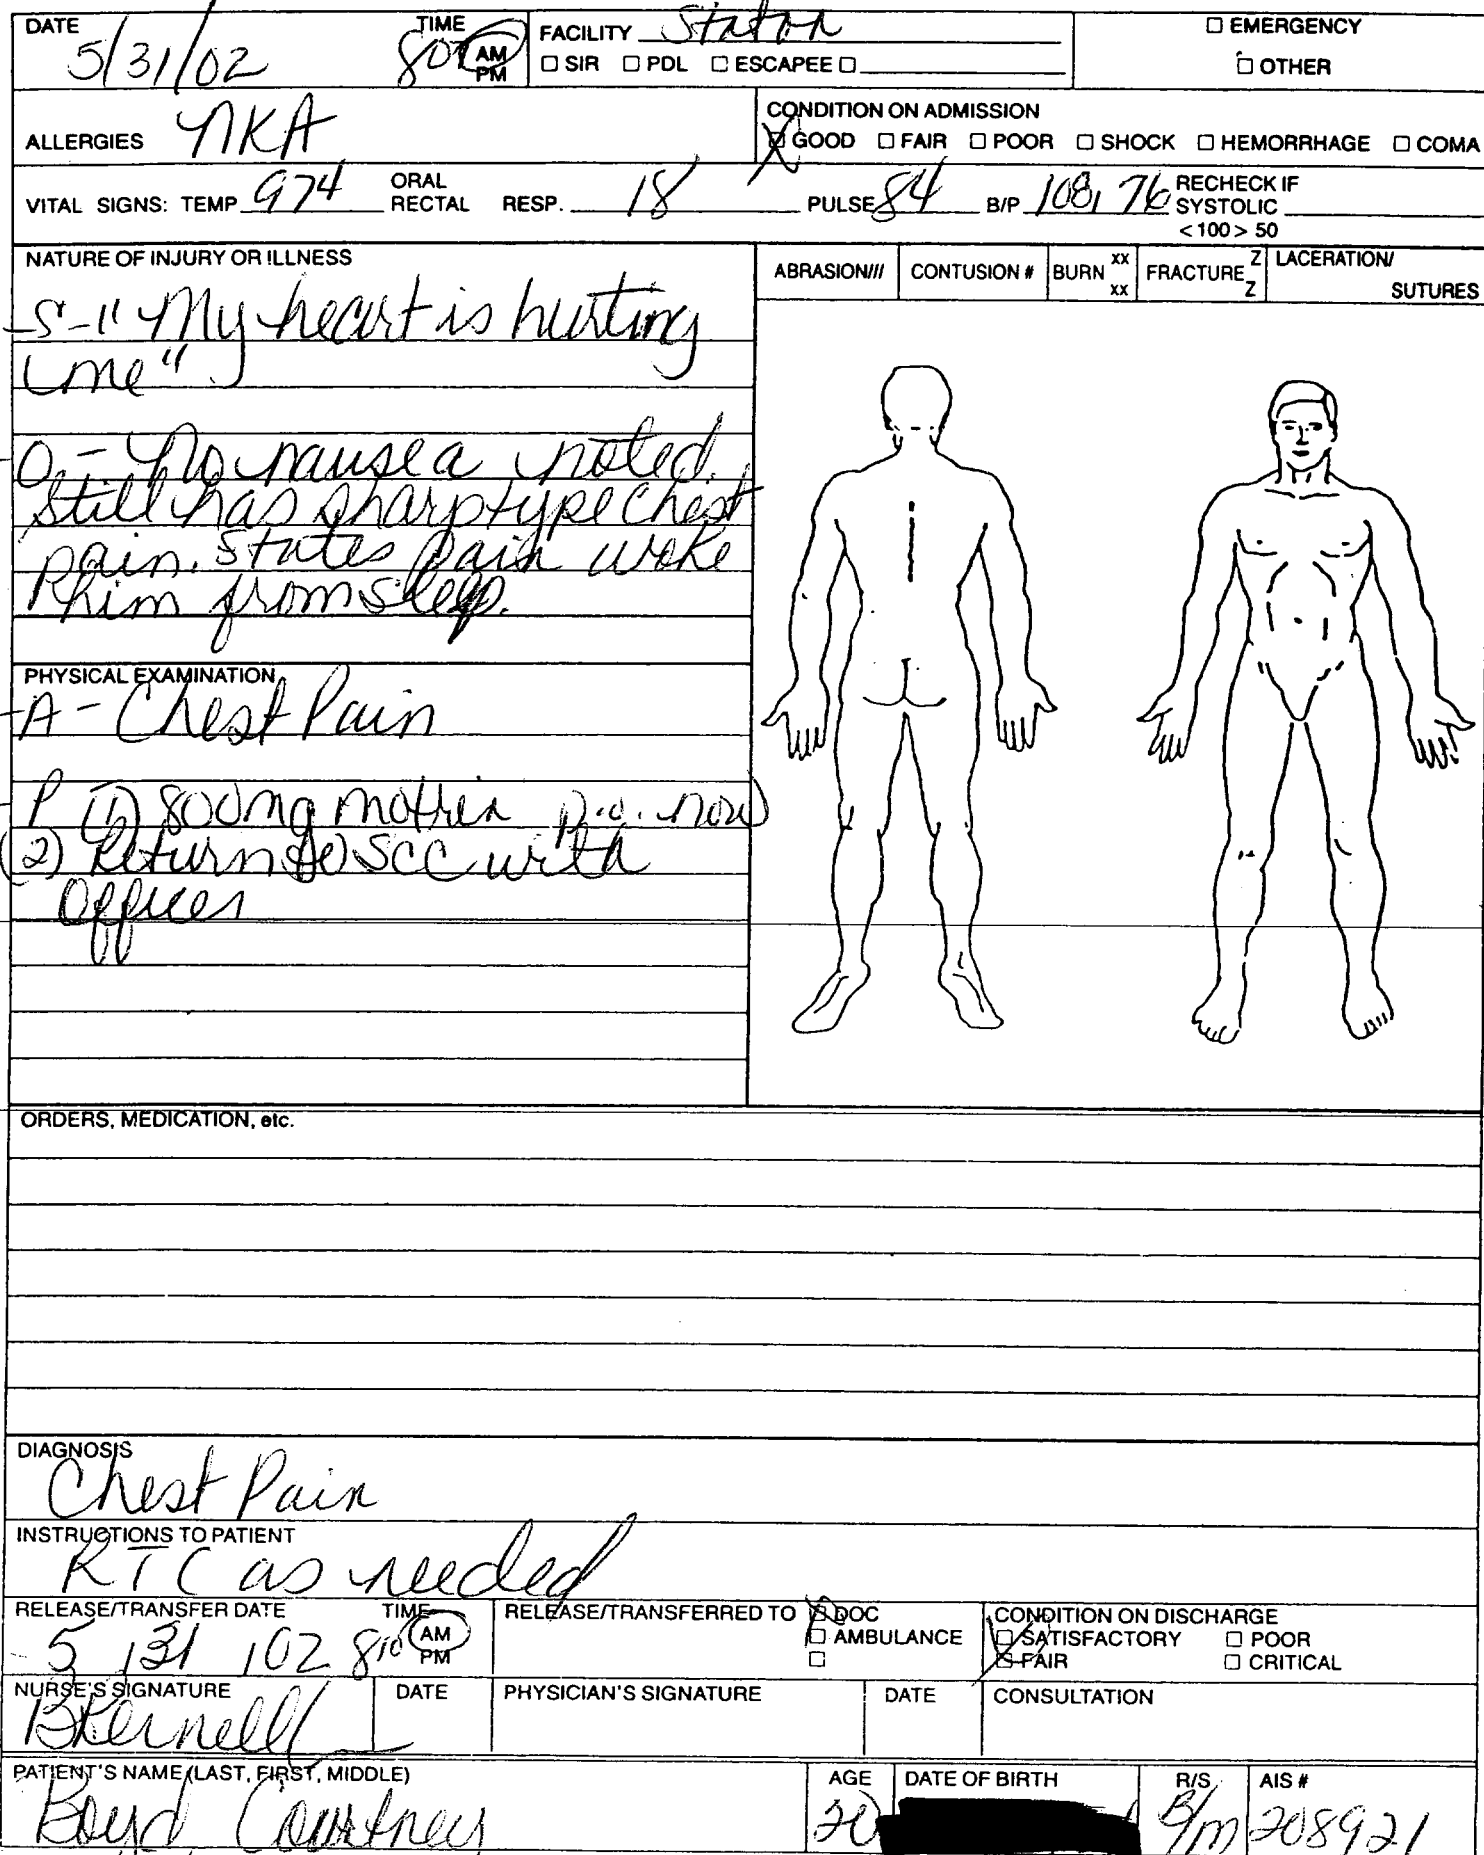 DATE TIME FACILITY Staton ☐ EMERGENCY
5/31/02 807 AM PM ☐ SIR ☐ PDL ☐ ESCAPEE ☐ ☐ OTHER
ALLERGIES NKA CONDITION ON ADMISSION
☒ GOOD ☐ FAIR ☐ POOR ☐ SHOCK ☐ HEMORRHAGE ☐ COMA
VITAL SIGNS: TEMP 974 ORAL RECTAL RESP. 18 PULSE 84 B/P 108, 76 RECHECK IF SYSTOLIC
<100> 50
NATURE OF INJURY OR ILLNESS
ABRASION/// CONTUSION # BURN xx xx FRACTURE Z Z LACERATION/ SUTURES
-S-"My heart is hurting
me"
O- No nausea noted.
Still has sharp type chest
pain. States pain woke
him from sleep.
PHYSICAL EXAMINATION
-A- Chest Pain
P (1) 800mg motrin p.o. now
(2) Return to SCC with
Officer
ORDERS, MEDICATION, etc.
DIAGNOSIS
Chest Pain
INSTRUCTIONS TO PATIENT
RTC as needed
RELEASE/TRANSFER DATE TIME RELEASE/TRANSFERRED TO ☒ DOC CONDITION ON DISCHARGE
5 / 31 / 02 810 AM PM ☐ AMBULANCE ☐ SATISFACTORY ☐ POOR
☐ ☒ FAIR ☐ CRITICAL
NURSE'S SIGNATURE DATE PHYSICIAN'S SIGNATURE DATE CONSULTATION
PATIENT'S NAME (LAST, FIRST, MIDDLE) AGE DATE OF BIRTH R/S AIS #
Boyd, Courtney 20 B/m 208921